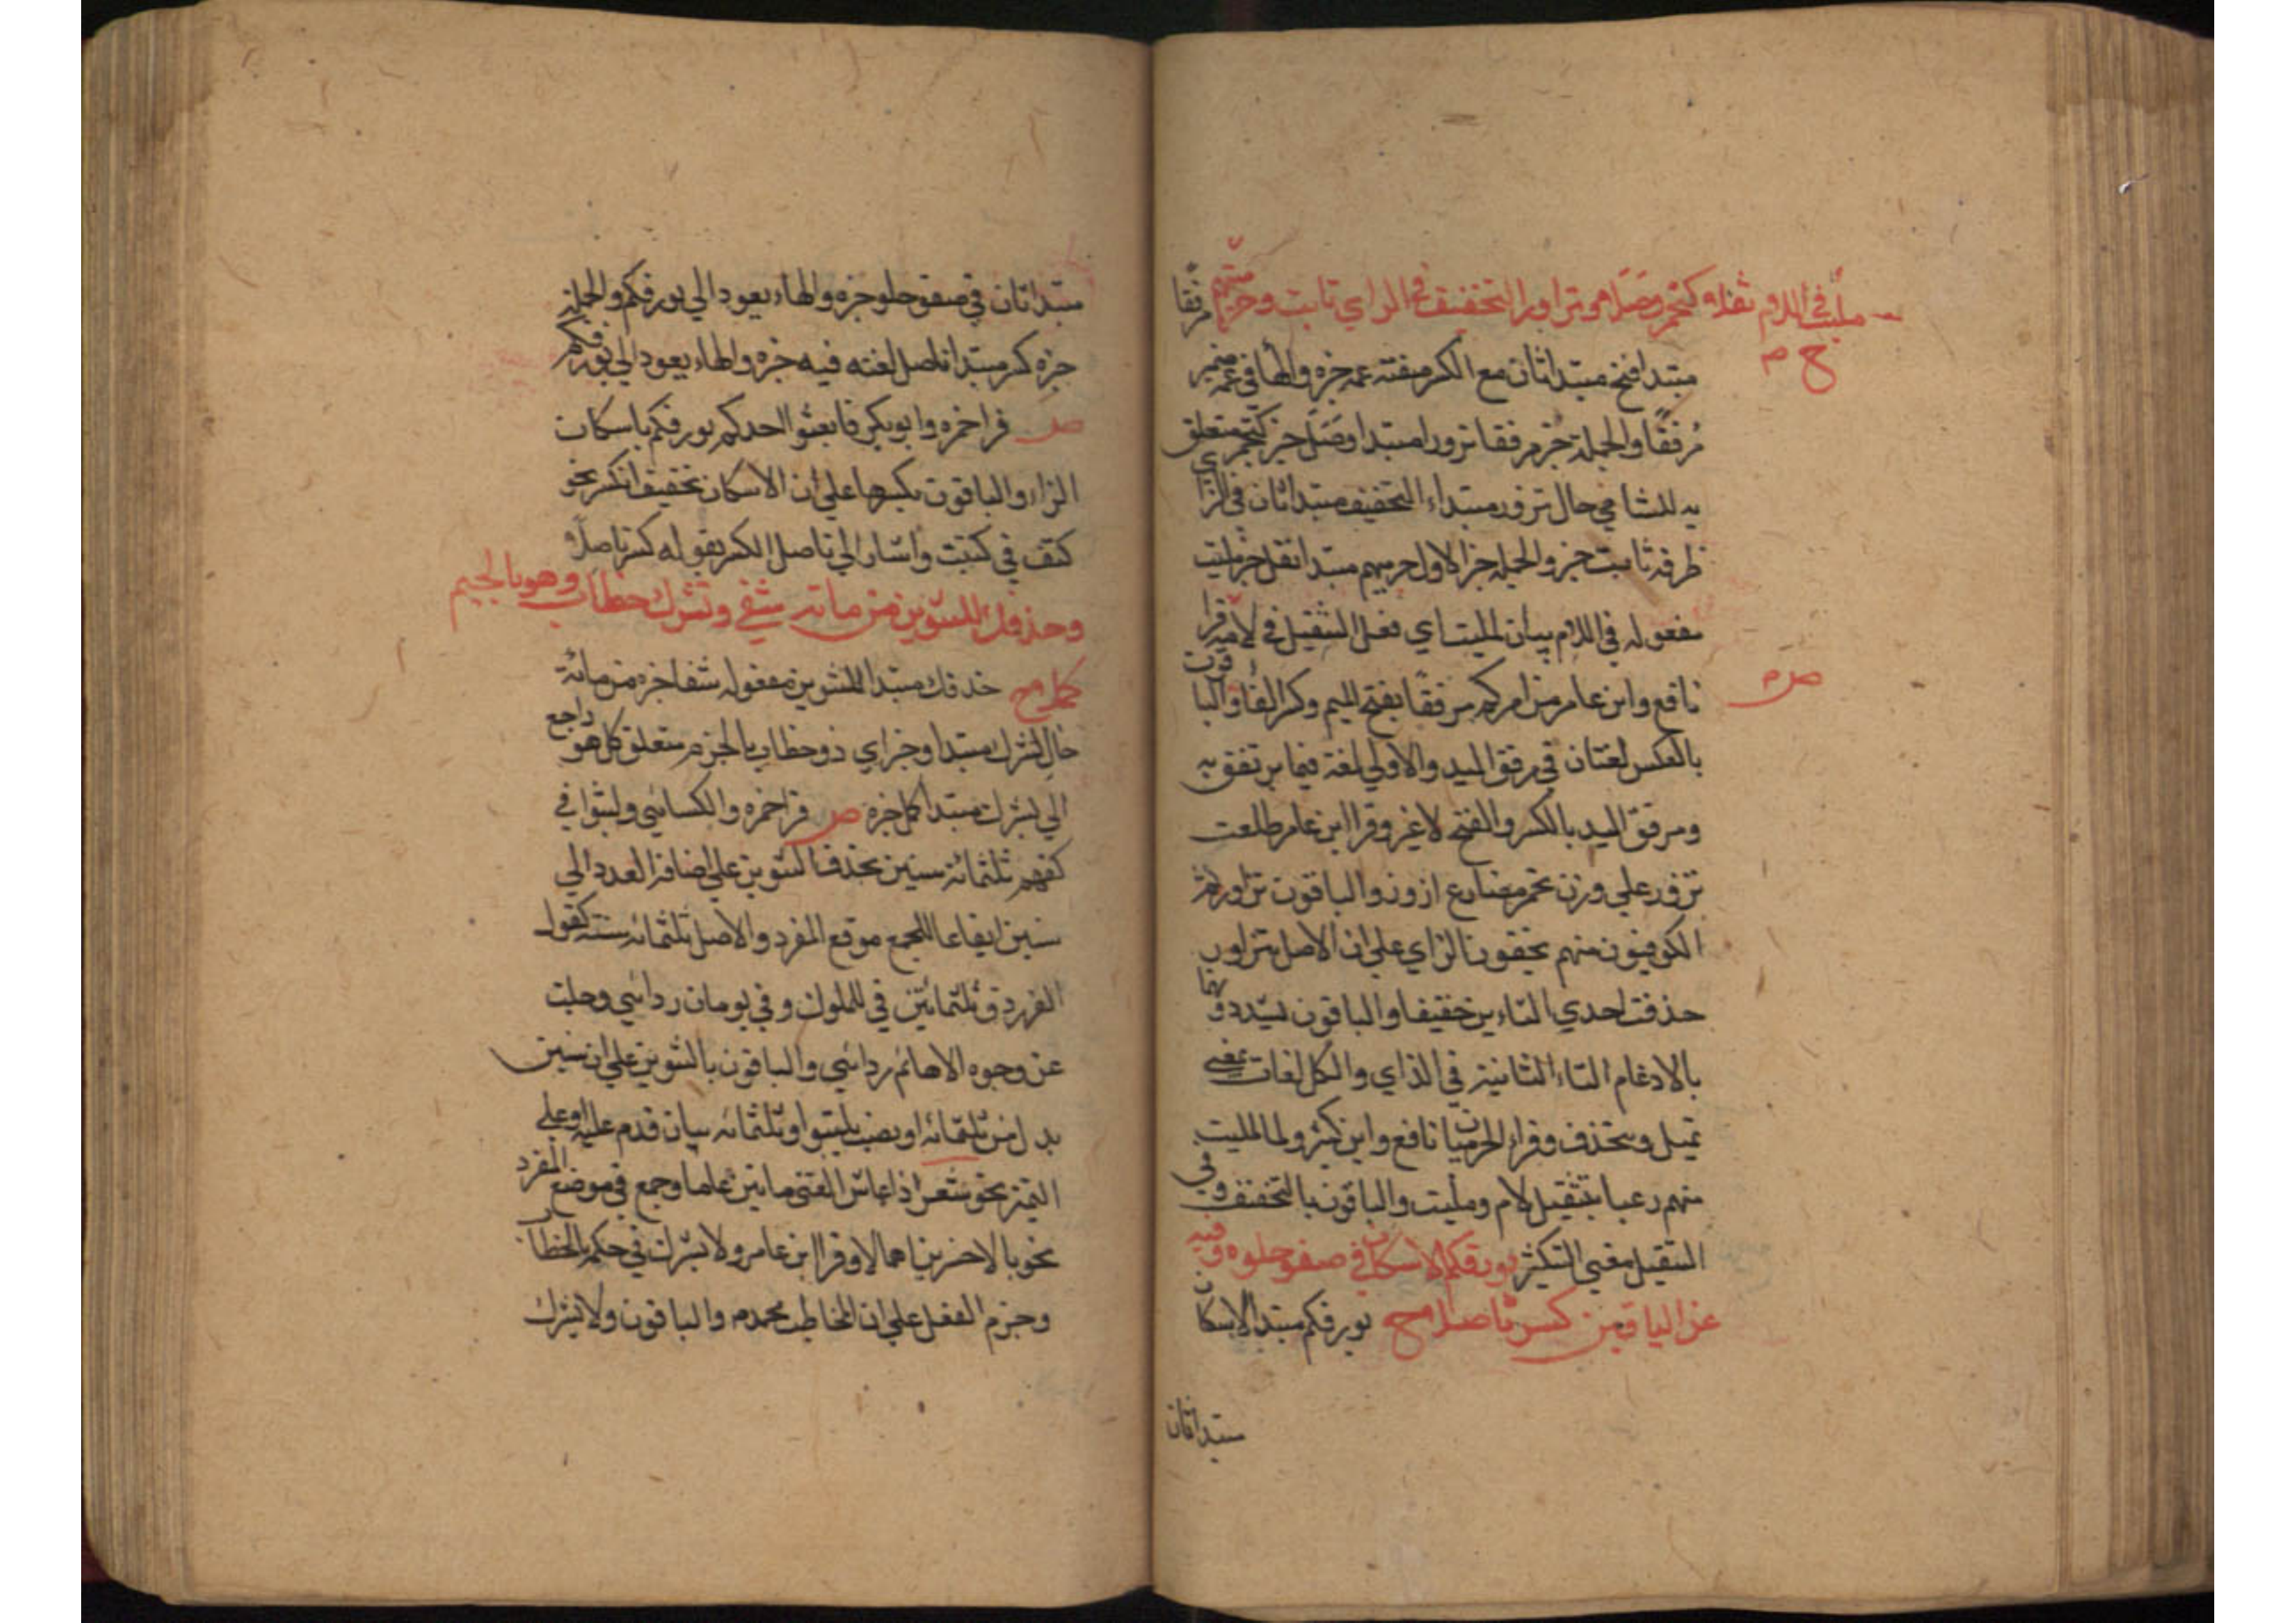 مليت في اللام ثقلا وكتحمر وصلا هو تزاور التخفيف في الزاي ثابت وحرميهم
ح م
مرفقا
مبتدا فتح مبتدا ثان مع الكسر صفته عمه خبره والها في عمه ضمير
مرفقا والجملة خبر مرفقا تزور مبتدا وصل خبر كتحمر متعلق
به للشامي حال تزور مبتداء التخفيف مبتدا ثان في الزاي
ظرفه ثابت خبر والجملة خبر الاول حرميهم مبتدا ثقل خبر مليت
مفعوله في اللام بيان لمليت اي فعل التثقيل في لامه قرا
ص م
نافع وابن عامر من امركم مرفقا بفتح الميم وكسر الفا والباقون
بالعكس لغتان في مرفق اليد والاولي لغة فيما يرتفق به
ومرفق اليد بالكسر والفتح لا غير وقرا ابن عامر طلعت
تزور علي وزن تحمر مضارع ازور والباقون تزاور ثم
الكوفيون منهم يخففون الزاي علي ان الاصل تتزاور
حذفت احدي التاءين خفيفا والباقون يشددونها
بالادغام التاء الثانية في الزاي والكل لغات بمعني
تميل وتحذف وقراء الحرميان نافع وابن كثير ولمليت
منهم رعبا بتثقيل لام ومليت والباقون بالتخفيف وفي
التثقيل معني التكثير بورقكم الاسكان في صفو حلوه وفيه
عن الباقين كسر تاصلا مح بورقكم مبتدا الاسكان
مبتدا ثان
مبتدا ثان في صفو حلو خبره والهاء يعود الي بورقكم والجملة
خبره كسر مبتدا تاصل نعته فيه خبره والهاء يعود الي بورقكم
ص قرا حمزه وابو بكر فابعثوا احدكم بورقكم باسكان
الراء والباقون بكسرها علي ان الاسكان تخفيف الكسر نحو
كتف في كتف واشار الي تاصل الكسر بقوله كسر تاصلا
وحذفك للتنوين من مائة شفي وتشرك خطاب وهو بالجيم
كملا مح حذفك مبتدا للتنوين مفعوله شفا خبره من مائة
حال تشرك مبتدا وخبر اي ذو خطاب بالجزم متعلق كل هو راجع
الي تشرك مبتدا كمل خبره ص قرا حمزه والكسائي ولبثوا في
كهفهم ثلثمائة سنين بحذف التنوين علي اضافة العدد الي
سنين ايقاعا للجمع موقع المفرد والاصل ثلثمائة سنة كقول
الفرزدق ثلثمائين في للملوك وفي بومات ردائي وجلت
عن وجوه الاهاتم ردائي والباقون بالتنوين علي ان سنين
بدل من ثلثمائة او نصب بلبثوا وثلثمائة بيان قدم عليه او علي
التميز نحو شعر اذا عاش الفتي مايتين عاما وجمع في موضع المفرد
نحو بالاخسرين اعمالا وقرا ابن عامر ولا تشرك في حكمه بالخطاب
وجزم الفعل علي ان المخاطب محمد م والباقون ولا يشرك